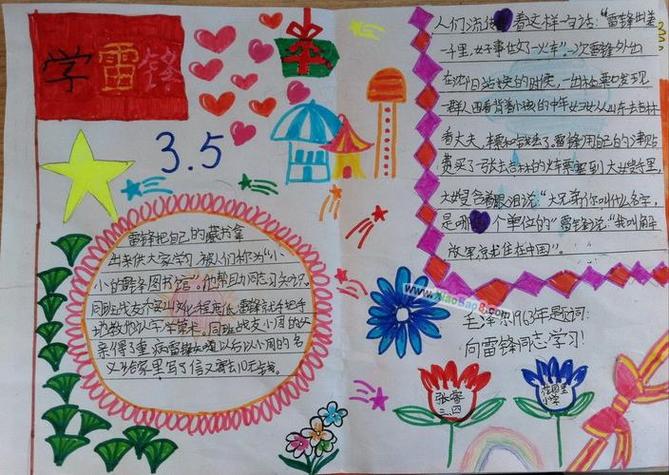 学雷锋
3.5
雷锋把自己的藏书拿
出来供大家学习,被人们称为“小
小的雷锋图书馆”。他帮助同志学知识。
同班战友乔安山文化程度低,雷锋就手把手
地教他认字、学算术。同班战友小周的父
亲得了重病,雷锋知道以后以小周的名
义给家里写了信又寄去10元钱。
人们流传着这样一句话:“雷锋出差
一千里,好事做了一火车”。一次雷锋外出
在沈阳站换车的时候,一出检票口发现
一群人围着背着小孩的中年妇女从山东去吉林
看丈夫,车票和钱丢了,雷锋用自己的津贴
费买了一张去吉林的火车票塞到大嫂手里,
大嫂含着眼泪说:“大兄弟,你叫什么名字,
是哪个单位的”雷锋说:“我叫解
放军就住在中国”。
www.XiaoBao8.com
毛泽东1963年题词:
向雷锋同志学习!
张睿
三、四
花园里
小学